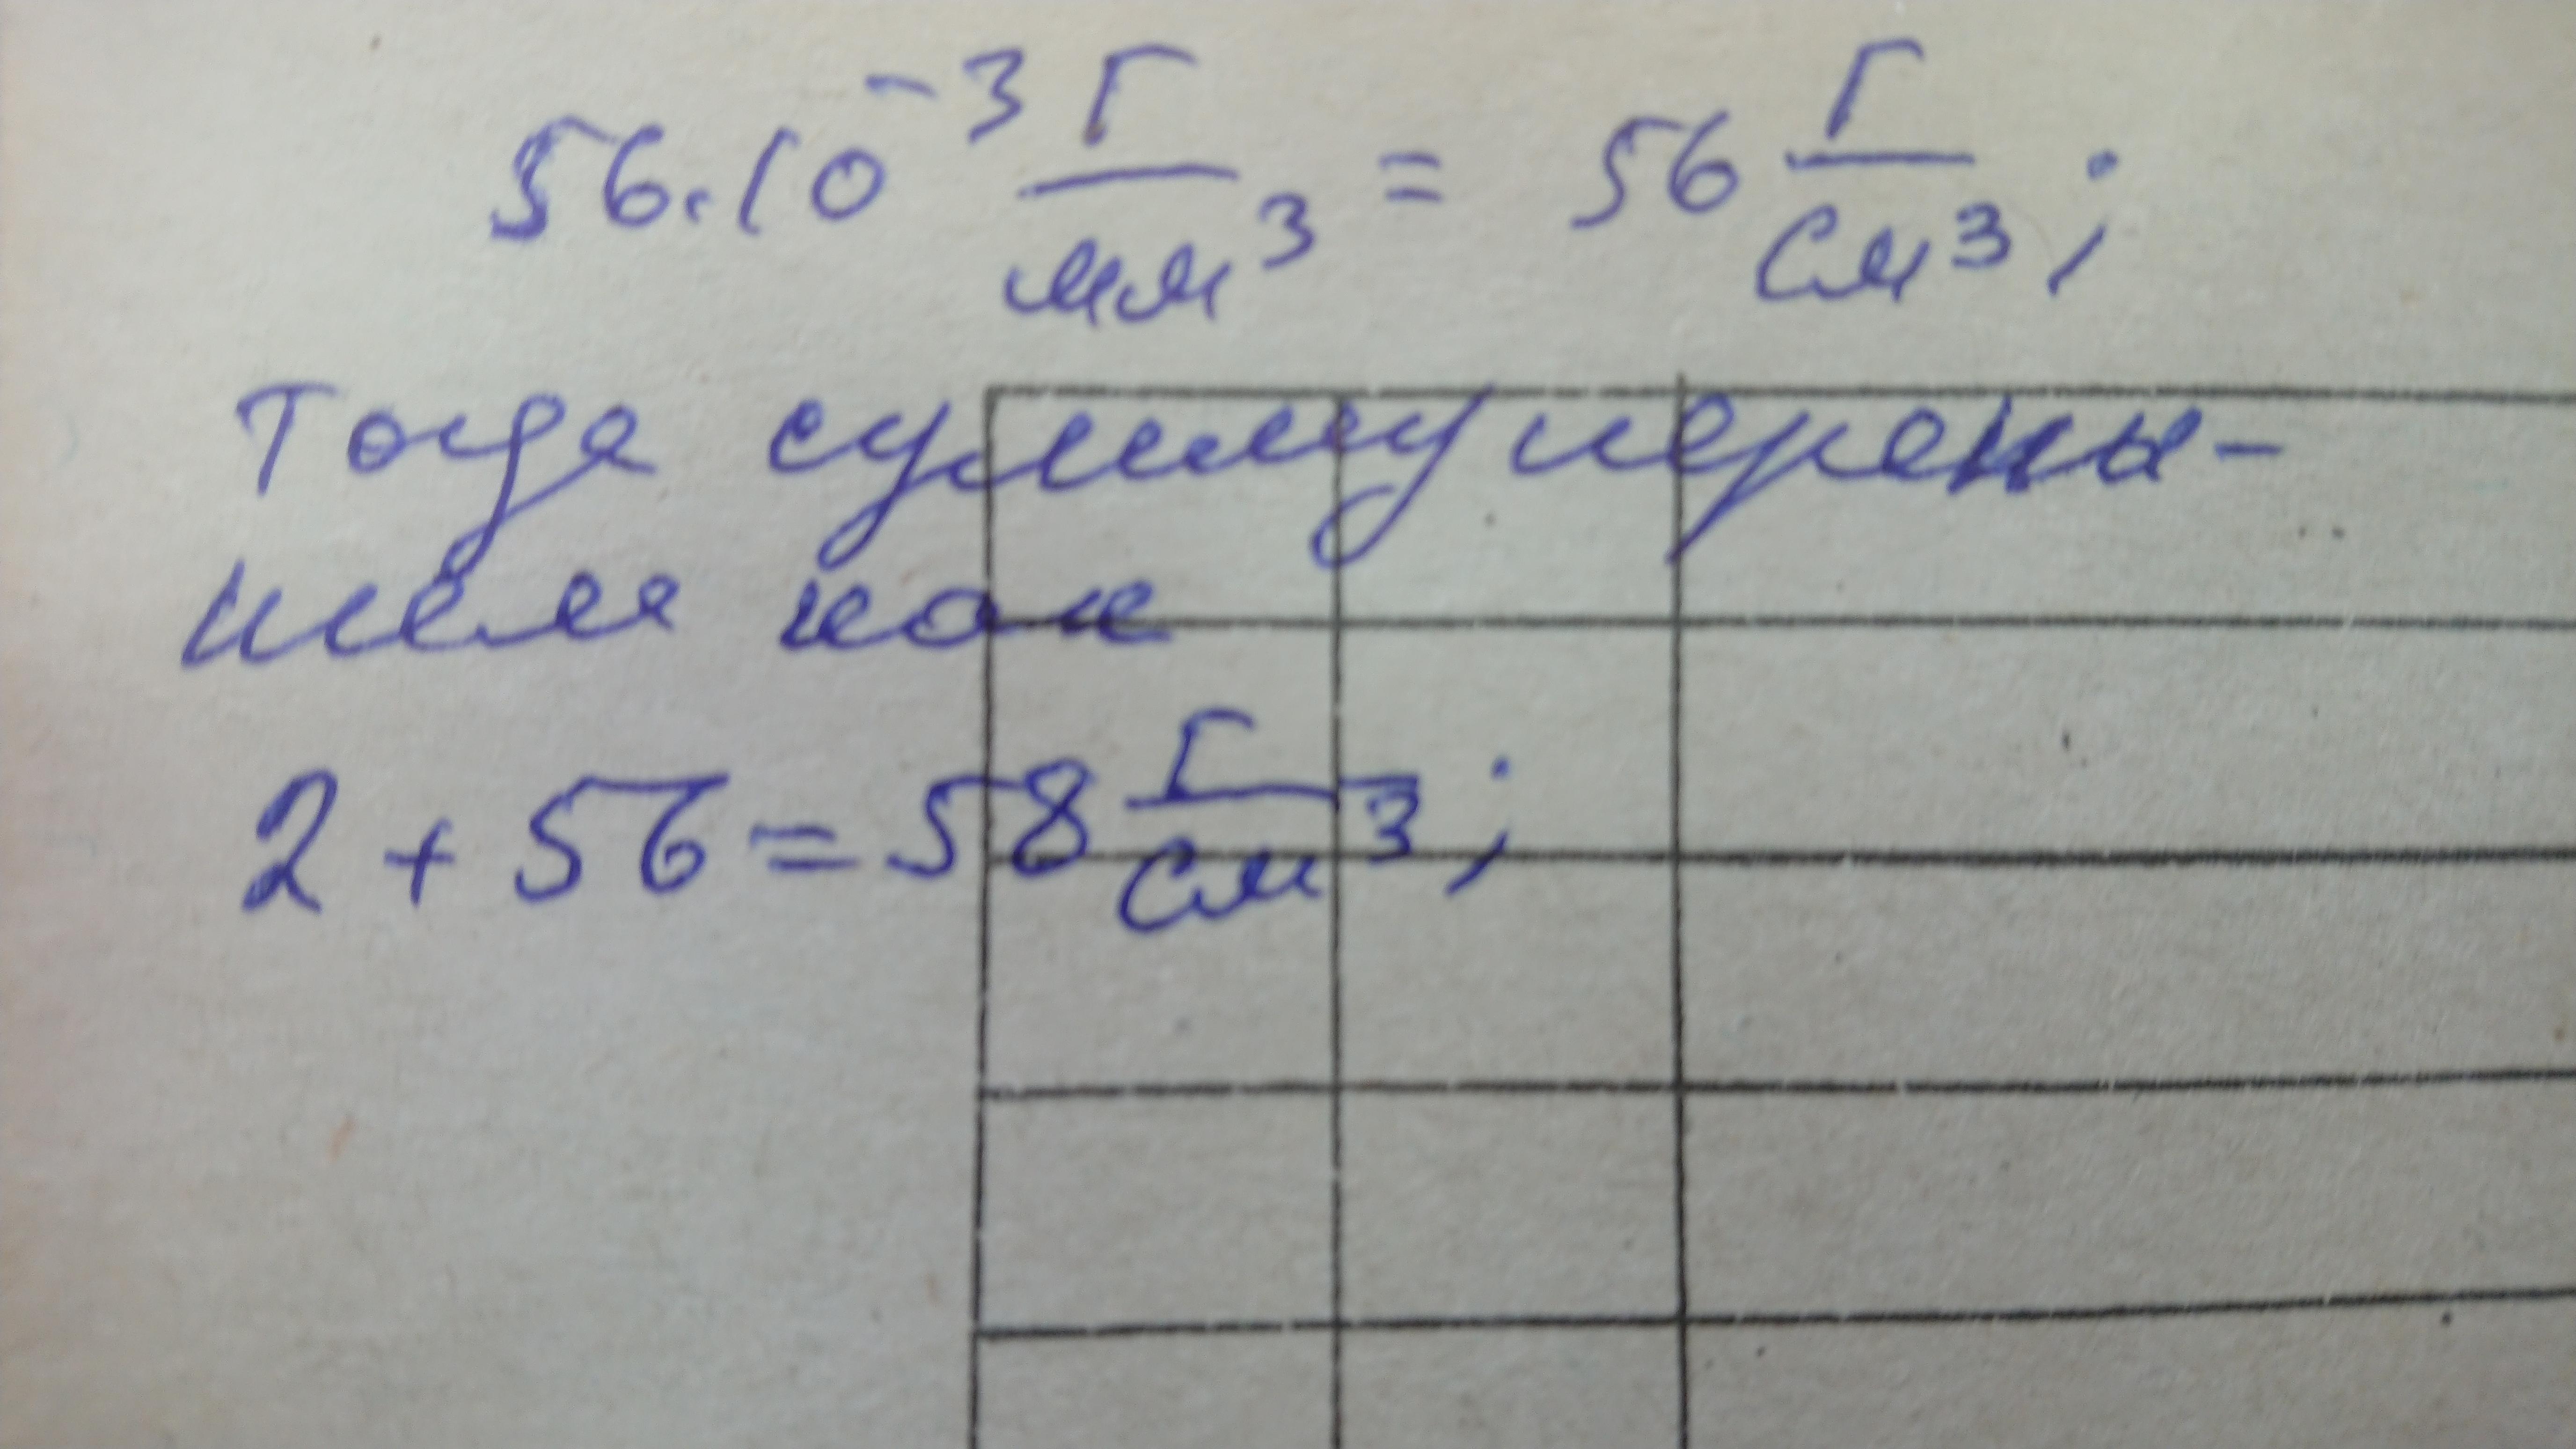 56·10⁻³ г/мм³ = 56 г/см³;
Тогда сумму перепи-
шем как
2 + 56 = 58 г/см³;